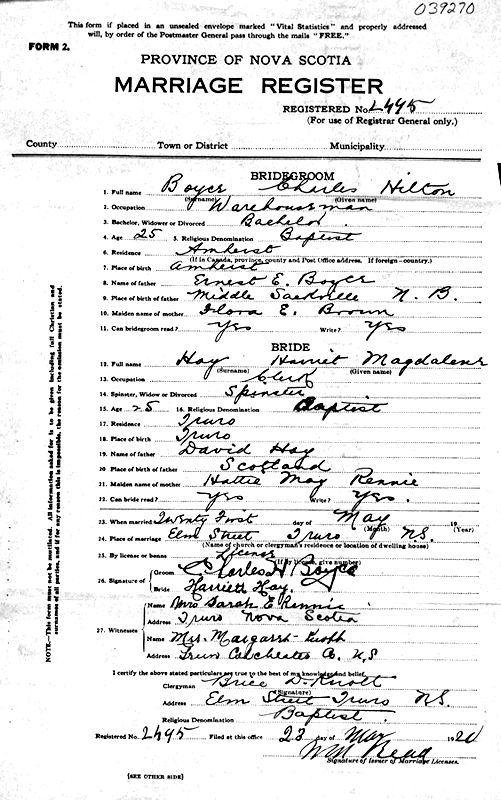 039270
This form if placed in an unsealed envelope marked "Vital Statistics" and properly addressed
will, by order of the Postmaster General pass through the mails "FREE."
FORM 2.
PROVINCE OF NOVA SCOTIA
MARRIAGE REGISTER
REGISTERED No. L495
(For use of Registrar General only.)
County Town or District Municipality
BRIDEGROOM
1. Full name Boyer Charles Hilton
(Surname) (Given name)
2. Occupation Warehouseman
3. Bachelor, Widower or Divorced Bachelor
4. Age 25 5. Religious Denomination Baptist
6. Residence Amherst
(If in Canada, province, county and Post Office address. If foreign - country.)
7. Place of birth Amherst
8. Name of father Ernest E. Boyer
9. Place of birth of father Middle Sackville N. B.
10. Maiden name of mother Flora E. Brown
11. Can bridegroom read? Yes Write? Yes
BRIDE
12. Full name Hay Harriet Magdalene
(Surname) (Given name)
13. Occupation Clerk
14. Spinster, Widow or Divorced Spinster
15. Age 25 16. Religious Denomination Baptist
17. Residence Truro
18. Place of birth Truro
19. Name of father David Hay
20 Place of birth of father Scotland
21. Maiden name of mother Hattie May Rennie
22. Can bride read? Yes Write? Yes.
23. When married Twenty First day of May 19
(Month) (Year)
24. Place of marriage Elm Street Truro N.S.
(Name of church or clergyman's residence or location of dwelling house)
25. By license or banns License
(If by license, give number)
26. Signature of
Groom Charles H Boyer
Bride Harriett Hay.
27. Witnesses
Name Mrs Sarah E Rennie
Address Truro Nova Scotia
Name Mrs. Margaret Knott
Address Truro Colchester Co. N.S
I certify the above stated particulars are true to the best of my knowledge and belief.
Clergyman Brice D. Knott
(Signature)
Address Elm Street Truro N.S.
Religious Denomination Baptist
Registered No. L495 Filed at this office 23 day of May 19
Signature of Issuer of Marriage Licenses.
[SEE OTHER SIDE]
NOTE.—This form must not be mutilated. All information asked for is to be given including full Christian and
surnames of all parties, and if for any reason this is impossible, the reason for the omission must be stated.